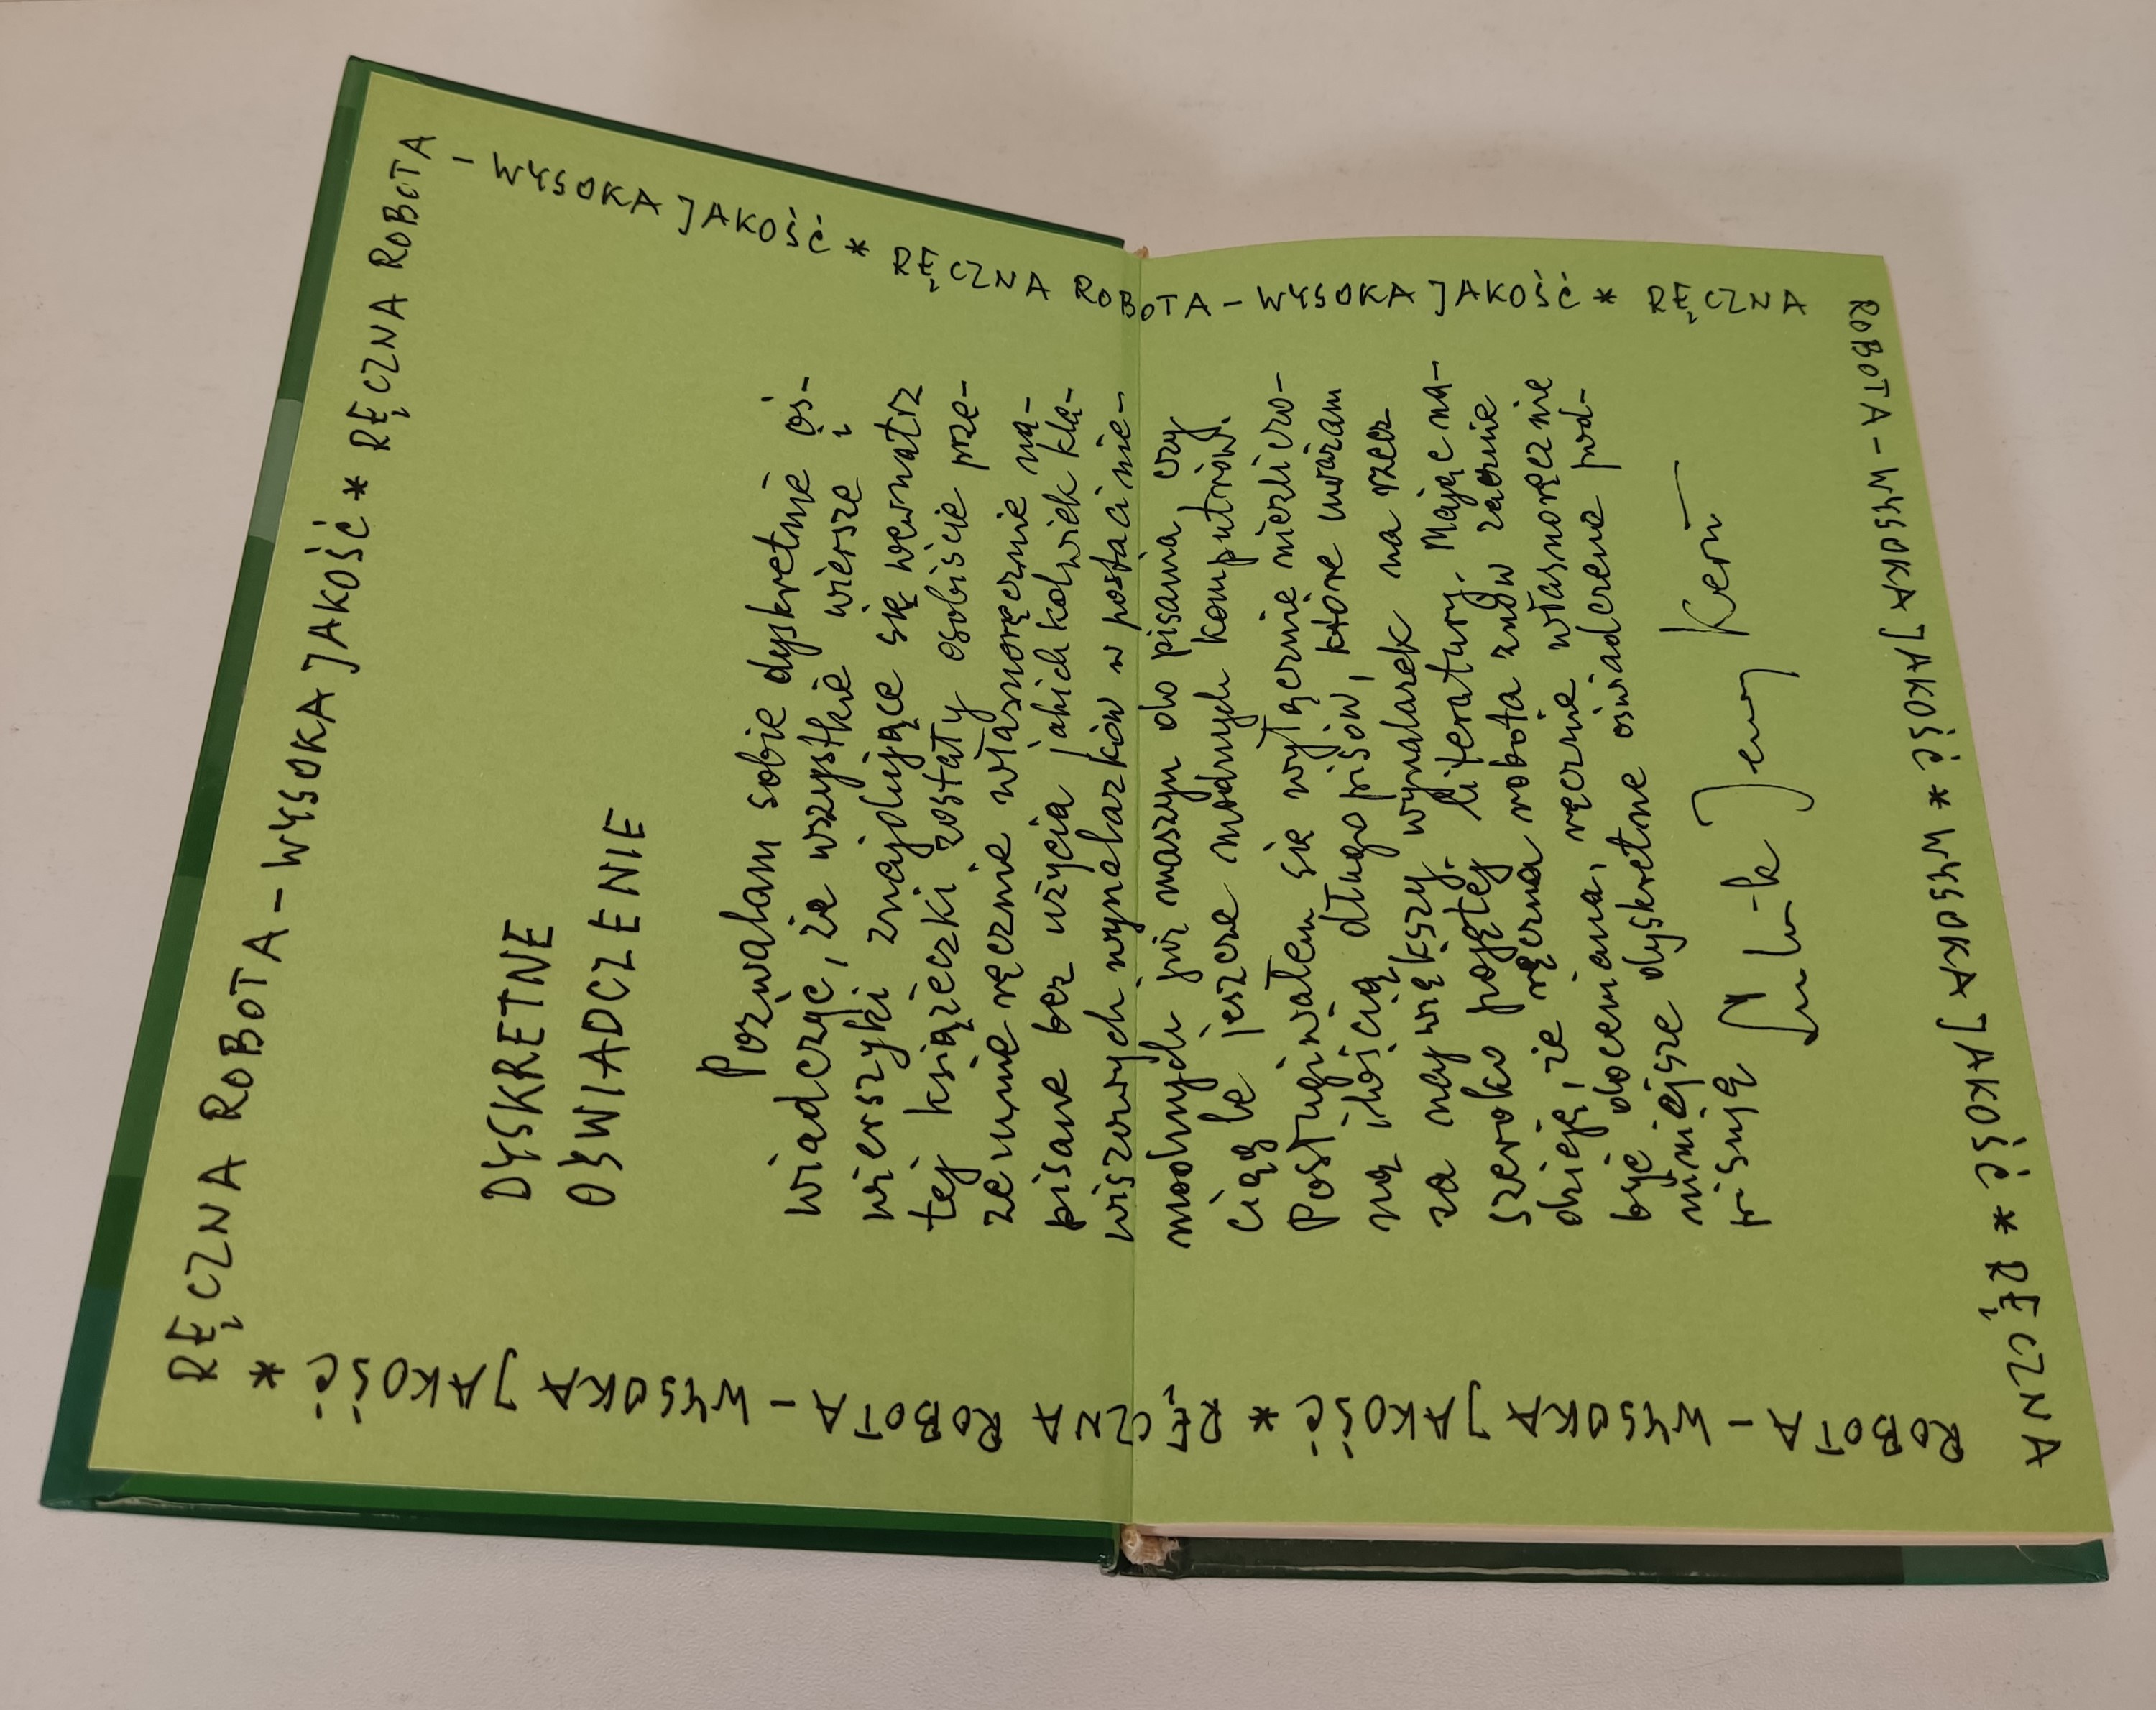 RĘCZNA ROBOTA - WYSOKA JAKOŚĆ * RĘCZNA ROBOTA
- WYSOKA JAKOŚĆ * RĘCZNA ROBOTA - WYSOKA JAKOŚĆ * RĘCZNA
ROBOTA - WYSOKA JAKOŚĆ * WYSOKA JAKOŚĆ * RĘCZNA
ROBOTA - WYSOKA JAKOŚĆ * RĘCZNA ROBOTA - WYSOKA JAKOŚĆ *
DYSKRETNE
OŚWIADCZENIE
Pozwalam sobie dyskretnie oś-
wiadczyć, że wszystkie wiersze i
wierszyki znajdujące się wewnątrz
tej książeczki zostały osobiście prze-
ze mnie ręcznie własnoręcznie na-
pisane bez użycia jakichkolwiek kla-
wiszowych wynalazków w postaci nie-
modnych już maszyn do pisania, czy
ciągle jeszcze modnych komputrów.
Posługiwałem się wyłącznie niezliczo-
ną ilością długopisów, które uważam
za największy wynalazek na rzecz
szeroko pojętej literatury. Mając na-
dzieję, że ręczna robota znów zacznie
być doceniana, ręcznie własnoręcznie
niniejsze dyskretne oświadczenie pod-
pisuję
Jerzy Kern